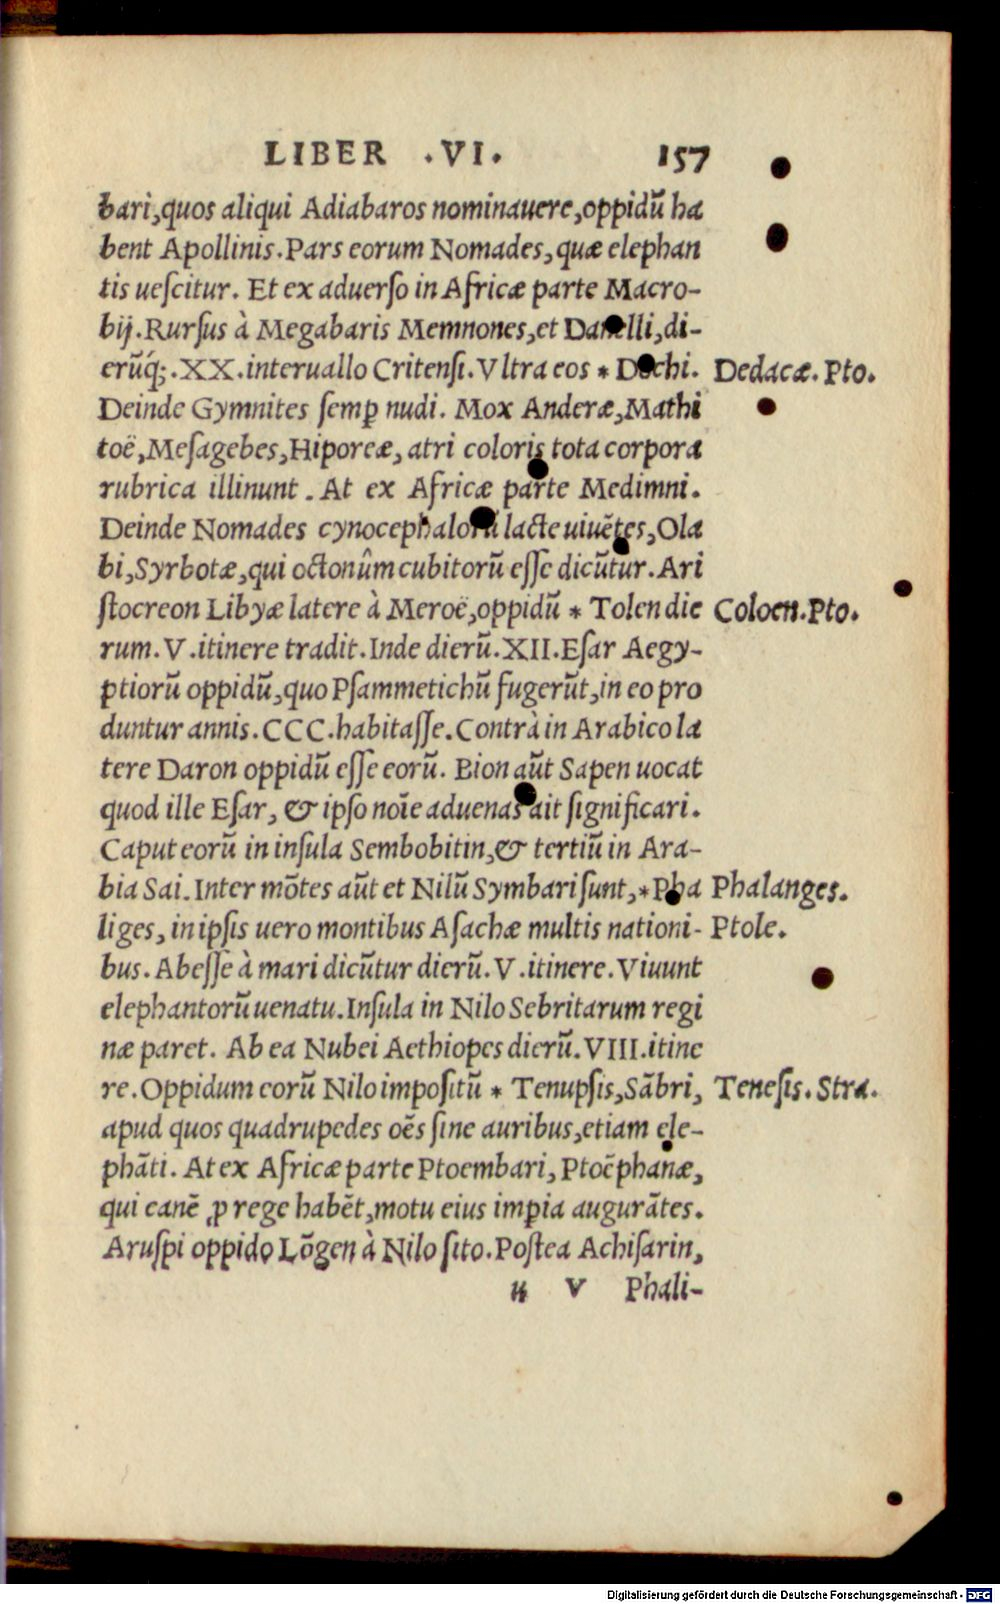 LIBER .VI. 157
bari,quos aliqui Adiabaros nominauere,oppidū ha
bent Apollinis.Pars eorum Nomades,quæ elephan
tis uescitur. Et ex aduerso in Africæ parte Macro-
bij.Rursus à Megabaris Memnones,et Danelli,di-
erūq́;.XX.interuallo Critensi.Vltra eos * Dochi. Dedacæ.Pto.
Deinde Gymnites semꝑ nudi. Mox Anderæ,Mathi
toë,Mesagebes,Hiporeæ, atri coloris tota corpora
rubrica illinunt . At ex Africæ parte Medimni.
Deinde Nomades cynocephalorū lacte uiuētes,Ola
bi,Syrbotæ,qui octonûm cubitorū esse dicūtur.Ari
stocreon Libyæ latere à Meroë,oppidū * Tolen die Coloen.Pto.
rum.V.itinere tradit.Inde dierū.XII.Esar Aegy-
ptiorū oppidū,quo Psammetichū fugerūt,in eo pro
duntur annis.CCC.habitasse.Contrà in Arabico la
tere Daron oppidū esse eorū. Bion aūt Sapen uocat
quod ille Esar, & ipso noīe aduenas ait significari.
Caput eorū in insula Sembobitin,& tertiū in Ara-
bia Sai.Inter mōtes aūt et Nilū Symbari sunt,*Pha Phalanges.
liges, in ipsis uero montibus Asachæ multis nationi- Ptole.
bus. Abesse à mari dicūtur dierū.V.itinere.Viuunt
elephantorū uenatu.Insula in Nilo Sebritarum regi
næ paret. Ab ea Nubei Aethiopes dierū.VIII.itine
re.Oppidum eorū Nilo impositū * Tenupsis,Sābri, Tenesis. Stra.
apud quos quadrupedes oēs sine auribus,etiam ele-
phāti. At ex Africæ parte Ptoembari, Ptoēphanæ,
qui canē ꝓ rege habēt,motu eius imꝑia augurātes.
Aruspi oppido Lōgen à Nilo sito.Postea Achisarin,
u v Phali-
Digitalisierung gefördert durch die Deutsche Forschungsgemeinschaft - DFG